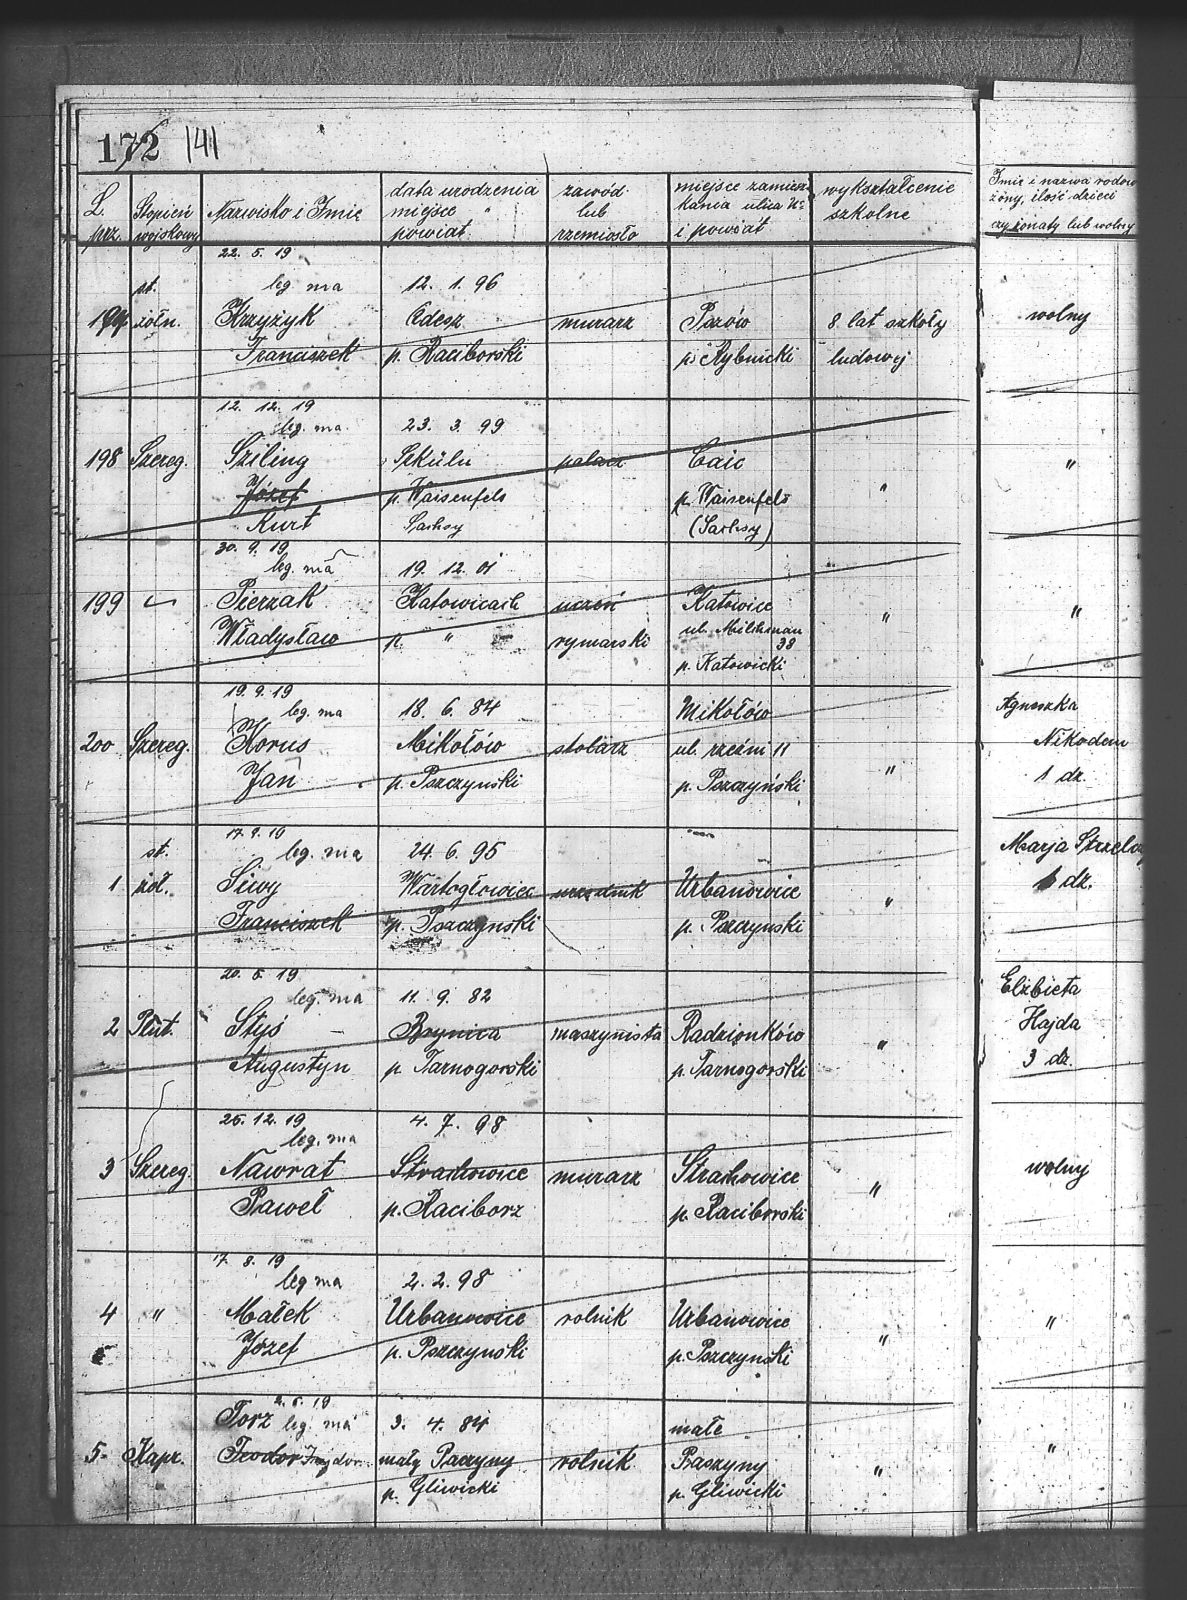 172 141
L. prz.
Stopień wojskowy
Nazwisko i Imię
data urodzenia miejsce powiat
zawód lub rzemiosło
miejsce zamieszkania ulica No i powiat
wykształcenie szkolne
Imię i nazwa rodow. żony, ilość dzieci czy żonaty lub wolny
22. 5. 19
st. leg ma 12. 1. 96
197 żołn. Krzyżyk murarz Pszów 8 lat szkoły wolny
Franciszek p. Raciborski p. Rybnicki ludowej
12. 12. 19
leg. ma 23. 3. 99
198 Szereg. Sziling Caic "
Józef p. Waisenfels p. Waisenfels "
Kurt Sachsy (Sachsy)
30. 9. 19
leg. ma 19. 12. 01
199 Pierzak Katowicach uczeń Katowice "
Władysław p. " rymarski ul. 38 "
p. Katowicki
19. 9. 19
leg. ma 18. 6. 84 Mikołów Agnieszka
200 Szereg. Korus Mikołów stolarz ul. rzeźni 11 Nikodem
Jan p. Pszczynski p. Pszczyński " 1 dz.
17. 9. 19
st. leg. ma 24. 6. 95 Marja Strzelcz
1 żoł. Siwy Wartogłowiec urzędnik Urbanowice " 1 dz.
Franciszek p. Pszczynski p. Pszczynski
20. 5. 19
leg. ma 11. 9. 82 Elżbieta
2 Plut. Styś Brynica maszynista Radzionków " Hajda
Augustyn p. Tarnogorski p. Tarnogorski 3 dz.
25. 12. 19
leg. ma 4. 7. 98
3 Szereg. Nawrat Strachowice murarz Strachowice wolny
Paweł p. Raciborz p. Raciborski "
17. 8. 19
leg ma 2. 2. 98
4 " Małek Urbanowice rolnik Urbanowice "
Józef p. Pszczynski p. Pszczyński "
2. 5. 19
Torz leg. ma 3. 4. 84 małe
5. Kapr. Teodor mały Paczyny rolnik Paszyny " "
p. Gliwicki p. Gliwicki